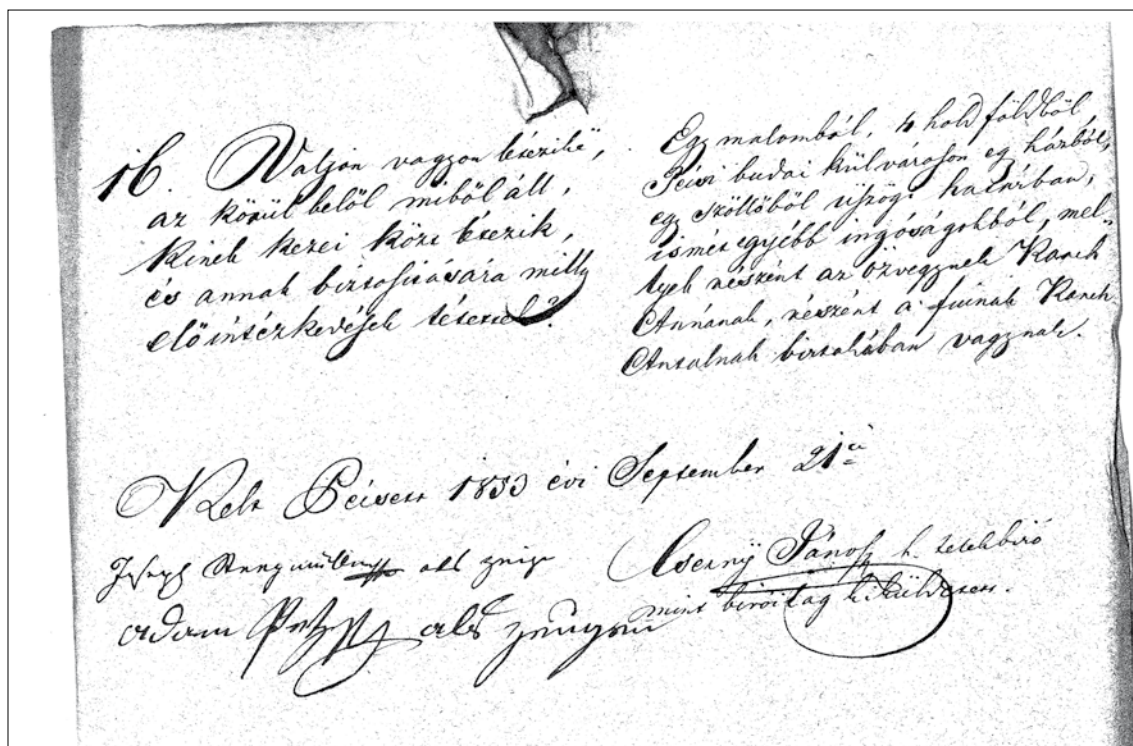 16. Valjon vagyon létezik é,
az körül belöl miböl áll,
kinek kezei közt létezik,
és annak biztositására milly
elöintézkedések tétettek?
Egy malomból, 4 hold földböl
Pécsi budai külvároson egy házból,
egy szöllöböl üszögi határban,
ismét egyébb ingóságokból, mel-
lyek részént az özvegynek Kanch
Annának, részént a fiúnak Kanch
Antalnak birtokában vagynak.
Kelt Pécsett 1853 évi September 21én
Joseph als zeige
Cserny János h. telekbiró
mint birói tag kiküldetett.
adam als zeugen